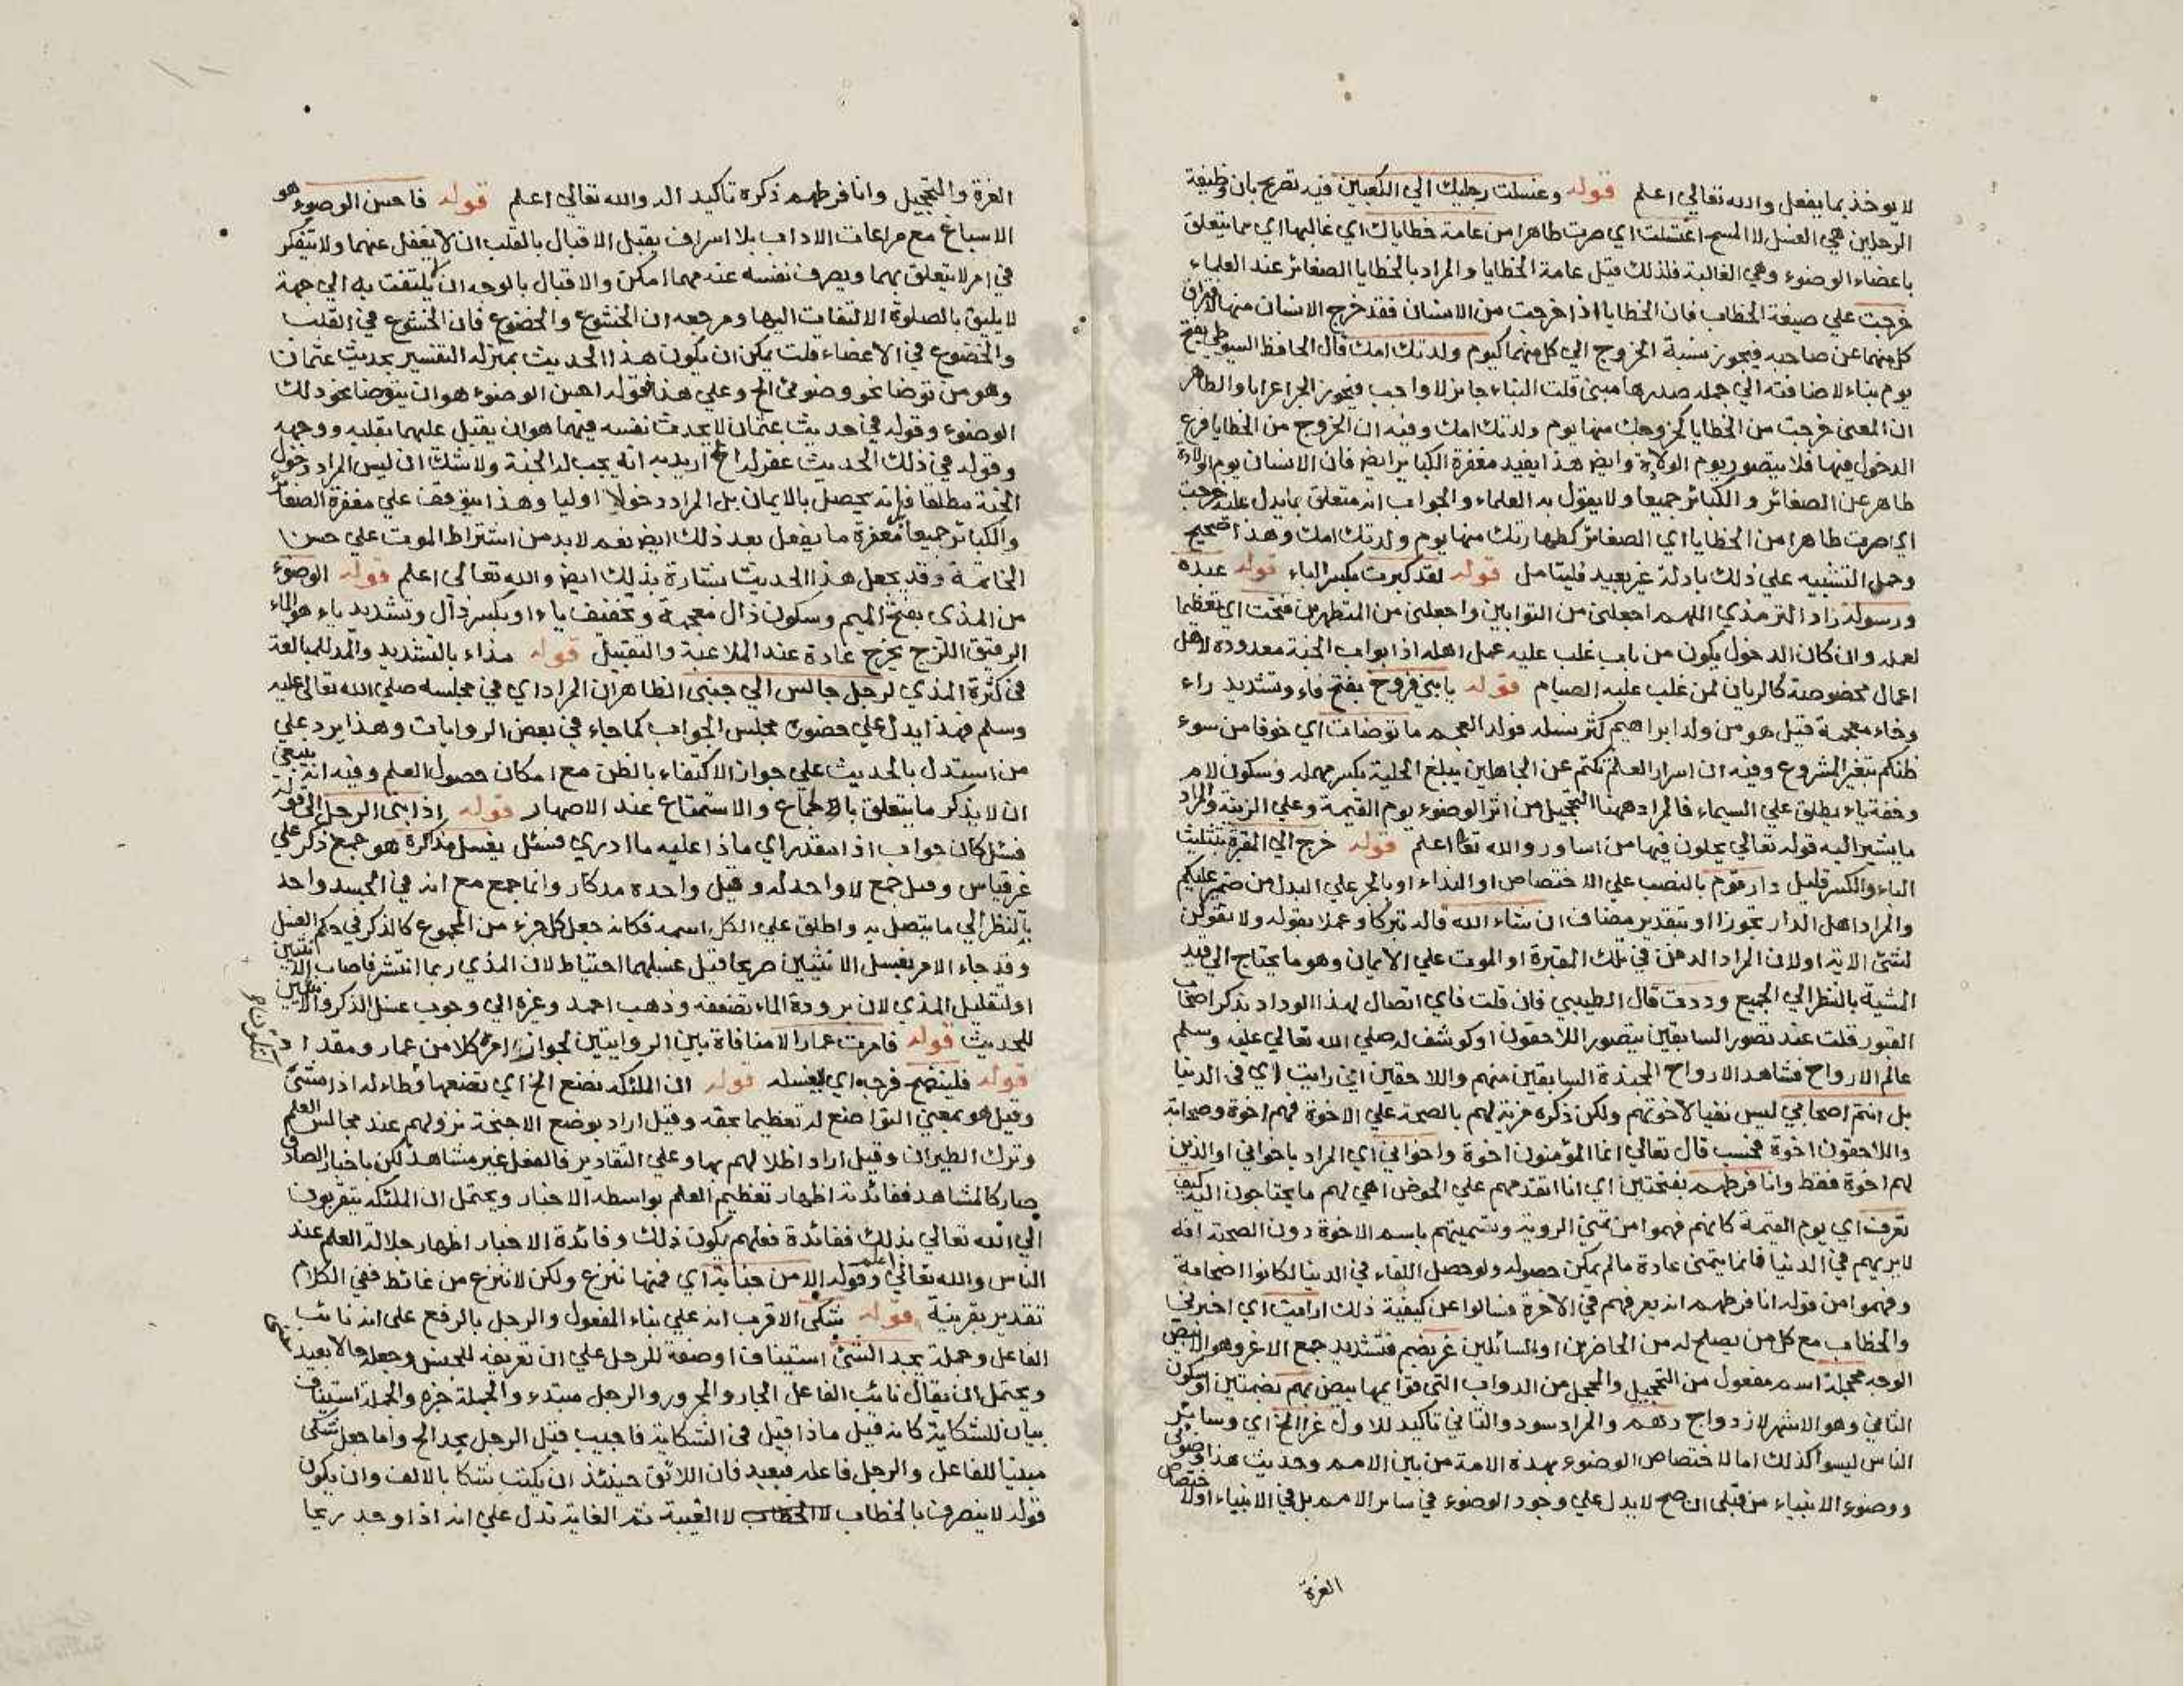 لا يوخذ بما يفعل والله تعالى اعلم قوله وغسلت رجليك الي الكعبين فيه تصريح بان وظيفة
الرجلين هي الغسل لا المسح اغتسلت اي صرت طاهرا من عامة خطاياك اي غالبها اي مما يتعلق
باعضاء الوضوء وهي الغالبة فلذلك قيل عامة الخطايا والمراد بالخطايا الصغائر عند العلماء
خرجت علي صيغة الخطاب فان الخطايا اذا خرجت من الانسان فقد خرج الانسان منها لافتراق
كل منهما عن صاحبه فيجوز نسبة الخروج الي كل منهما كيوم ولدتك امك قال الحافظ السيوطي بفتح
يوم بناء لاضافته الي جملة صدرها مبني قلت البناء جائز لا واجب فيجوز الجر اعرابا والظاهر
ان المعني خرجت من الخطايا كخروجك منها يوم ولدتك امك وفيه ان الخروج من الخطايا فرع
الدخول فيها فلا يتصور يوم الولادة وايض هذا يفيد مغفرة الكبائر ايض فان الانسان يوم الولادة
طاهر عن الصغائر والكبائر جميعا ولا يقول به العلماء والجواب انه متعلق بما يدل عليه خرجت
اي صرت طاهرا من الخطايا اي الصغائر كطهارتك منها يوم ولدتك امك وهذا صحيح
وحمل التشبيه علي ذلك بادلة غير بعيد فليتامل قوله لقد كبرت بكسر الباء قوله عبده
ورسوله زاد الترمذي اللهم اجعلني من التوابين واجعلني من المتطهرين فتحت اي تعظيما
لعمله وان كان الدخول يكون من باب غلب عليه عمل اهله اذ ابواب الجنة معدودة لاهل
اعمال مخصوصة كالريان لمن غلب عليه الصيام قوله يا بني فروخ بفتح فاء وتشديد راء
وخاء معجمة قيل هو من ولد ابراهيم كثر نسله فولد العجم ما توضات اي خوفا من سوء
ظنكم بتغير المشروع وفيه ان اسرار العلم تكتم عن الجاهلين يبلغ الحلية بكسر مهملة وسكون لام
وخفة ياء يطلق علي السيماء فالمراد ههنا التحجيل من اثر الوضوء يوم القيمة وعلي الزينة والمراد
ما يشير اليه قوله تعالي يحلون فيها من اساور والله تعا اعلم قوله خرج الي المقبرة بتثليث
الباء والكسر قليل دار قوم بالنصب علي الاختصاص او النداء او بالجر علي البدل من ضمير عليكم
والمراد اهل الدار تجوزا او بتقدير مضاف ان شاء الله قاله تبركا وعملا بقوله ولا تقولن
لشئ الاية او لان المراد الدفن في تلك المقبرة او الموت علي الايمان وهو ما يحتاج الي قيد
المشية بالنظر الي الجميع وددت قال الطيبي فان قلت فاي اتصال لهذا الوداد بذكر اصحاب
القبور قلت عند تصور السابقين يتصور اللاحقون او كوشف له صلي الله تعالي عليه وسلم
عالم الارواح فشاهد الارواح المجندة السابقين منهم واللاحقين اني رايت اي في الدنيا
بل انتم اصحابي ليس نفيا لاخوتهم ولكن ذكره مزية لهم بالصحبة علي الاخوة فهم اخوة وصحابة
واللاحقون اخوة فحسب قال تعالي انما المؤمنون اخوة واخواني اي المراد باخواني او الذين
لهم اخوة فقط وانا فرطهم بفتحتين اي انا اتقدمهم علي الحوض اهيئ لهم ما يحتاجون اليه كيف
تعرف اي يوم القيمة كانهم فهموا من تمني الروية وتسميتهم باسم الاخوة دون الصحبة انه
لا يريهم في الدنيا فانما يتمني عادة ما لم يمكن حصوله ولو حصل اللقاء في الدنيا لكانوا اصحابه
وفهموا من قوله انا فرطهم انه يعرفهم في الاخرة فسالوا عن كيفية ذلك ارايت اي اخبرني
والخطاب مع كل من يصلح له من الحاضرين او السائلين غر بضم فتشديد جمع الاغر وهو الابيض
الوجه محجلة اسم مفعول من التحجيل والمحجل من الدواب التي قوائمها بيض بهم بضمتين او سكون
الثاني وهو الاشهر لازدواج دهم والمراد سود والثاني تاكيد للاول غرا الخ اي وسائر
الناس ليسوا كذلك اما لاختصاص الوضوء بهذه الامة من بين الامم وحديث هذا وضوئي
ووضوء الانبياء من قبلي ان صح لا يدل علي وجود الوضوء في سائر الامم بل في الانبياء او لاختصاص
الغرة
الغرة والتحجيل وانا فرطهم ذكره تاكيد اله والله تعالي اعلم قوله فاحسن الوضوء هو
الاسباغ مع مراعات الاداب بلا اسراف يقبل الاقبال بالقلب ان لا يغفل عنهما ولا يتفكر
في امر لا يتعلق بهما ويصرف نفسه عنه مهما امكن والاقبال بالوجه ان لا يلتفت به الي جهة
لا يليق بالصلوة الالتفات اليها ومرجعه ان الخشوع والخضوع فان الخشوع في القلب
والخضوع في الاعضاء قلت يمكن ان يكون هذا الحديث بمنزلة التفسير بحديث عثمان
وهو من توضا نحو وضوئي الخ وعلي هذا فقوله احسن الوضوء هو ان يتوضا نحو ذلك
الوضوء وقوله في حديث عثمان لا يحدث نفسه فيهما هو ان يقبل عليهما بقلبه ووجهه
وقوله في ذلك الحديث غفر له الخ اريد به انه يجب له الجنة ولا شك ان ليس المراد دخول
الجنة مطلقا فانه يحصل بالايمان بل المراد دخولا اوليا وهذا يتوقف علي مغفرة الصغائر
والكبائر جميعا مغفرة ما يفعل بعد ذلك ايض نعم لا بد من اشتراط الموت علي حسن
الخاتمة وقد يجعل هذا الحديث بشارة بذلك ايض والله تعالى اعلم قوله الوضوء
من المذى بفتح الميم وسكون ذال معجمة وتخفيف ياء او بكسر ذال وتشديد ياء هو الماء
الرقيق اللزج يخرج عادة عند الملاعبة والتقبيل قوله مذاء بالتشديد والمد للمبالغة
في كثرة المذي لرجل جالس الي جنبي الظاهر ان المراد اي في مجلسه صلي الله تعالى عليه
وسلم فهذا يدل علي حضوره مجلس الجواب كما جاء في بعض الروايات وهذا يرد علي
من استدل بالحديث علي جواز الاكتفاء بالظن مع امكان حصول العلم وفيه انه ينبغي
ان لا يذكر ما يتعلق بالجماع والاستمتاع عند الاصهار قوله اذا بنى الرجل الي قوله
فسئل كان جواب اذا مقدر اي ماذا عليه ما ادري فسئل يغسل مذاكره هو جمع ذكر علي
غير قياس وقيل جمع لا واحد له وقيل واحده مذكار وانما جمع مع انه في الجسد واحد
بالنظر الي ما يتصل به واطلق علي الكل اسمه فكانه جعل كل جزء من المجموع كالذكر في حكم الغسل
وقد جاء الامر بغسل الانثيين صريحا قيل غسلهما احتياط لان المذي ربما انتشر فاصاب الانثيين
او لتقليل المذي لان برودة الماء تضعفه وذهب احمد وغيره الي وجوب غسل الذكر والانثيين
للحديث قوله فامرت عمارا لا منافاة بين الروايتين لجواز امره كلا من عمار ومقداد
قوله فلينضح فرجه اي ليغسله قوله ان الملئكة تضع الخ اي تضعها وطاء له اذا مشي
وقيل هو بمعني التواضع له تعظيما بحقه وقيل اراد بوضع الاجنحة نزولهم عند مجالس العلم
وترك الطيران وقيل اراد اظلالهم بها وعلي التقادير فالفعل غير مشاهد لكن باخبار الصادق
صار كالمشاهد ففائدته اظهار تعظيم العلم بواسطة الاخبار ويحتمل ان الملئكة يتقربون
الي الله تعالي بذلك ففائدة فعلهم يكون ذلك وفائدة الاخبار اظهار جلالة العلم عند
الناس والله تعالي اعلم وقوله الا من جنابة اي فمنها ننزع ولكن لا ننزع من غائط ففي الكلام
تقدير بقرينة قوله شكى الاقرب انه علي بناء المفعول والرجل بالرفع على انه نائب
الفاعل وجملة يجد الشئ استيناف او صفة للرجل علي ان تعريفه للجنس وجعله حالا بعيد
ويحتمل ان يقال نائب الفاعل الجار والمجرور والرجل مبتدء والجملة خبره والجملة استيناف
بيان للشكاية كانه قيل ماذا قيل في الشكاية فاجيب قيل الرجل يجد الخ واما جعل شكى
مبنيا للفاعل والرجل فاعله فبعيد فان اللائق حينئذ ان يكتب شكا بالالف وان يكون
قوله لا ينصرف بالخطاب لا الغيبة ثم الغاية تدل علي انه اذا وجد ريحا